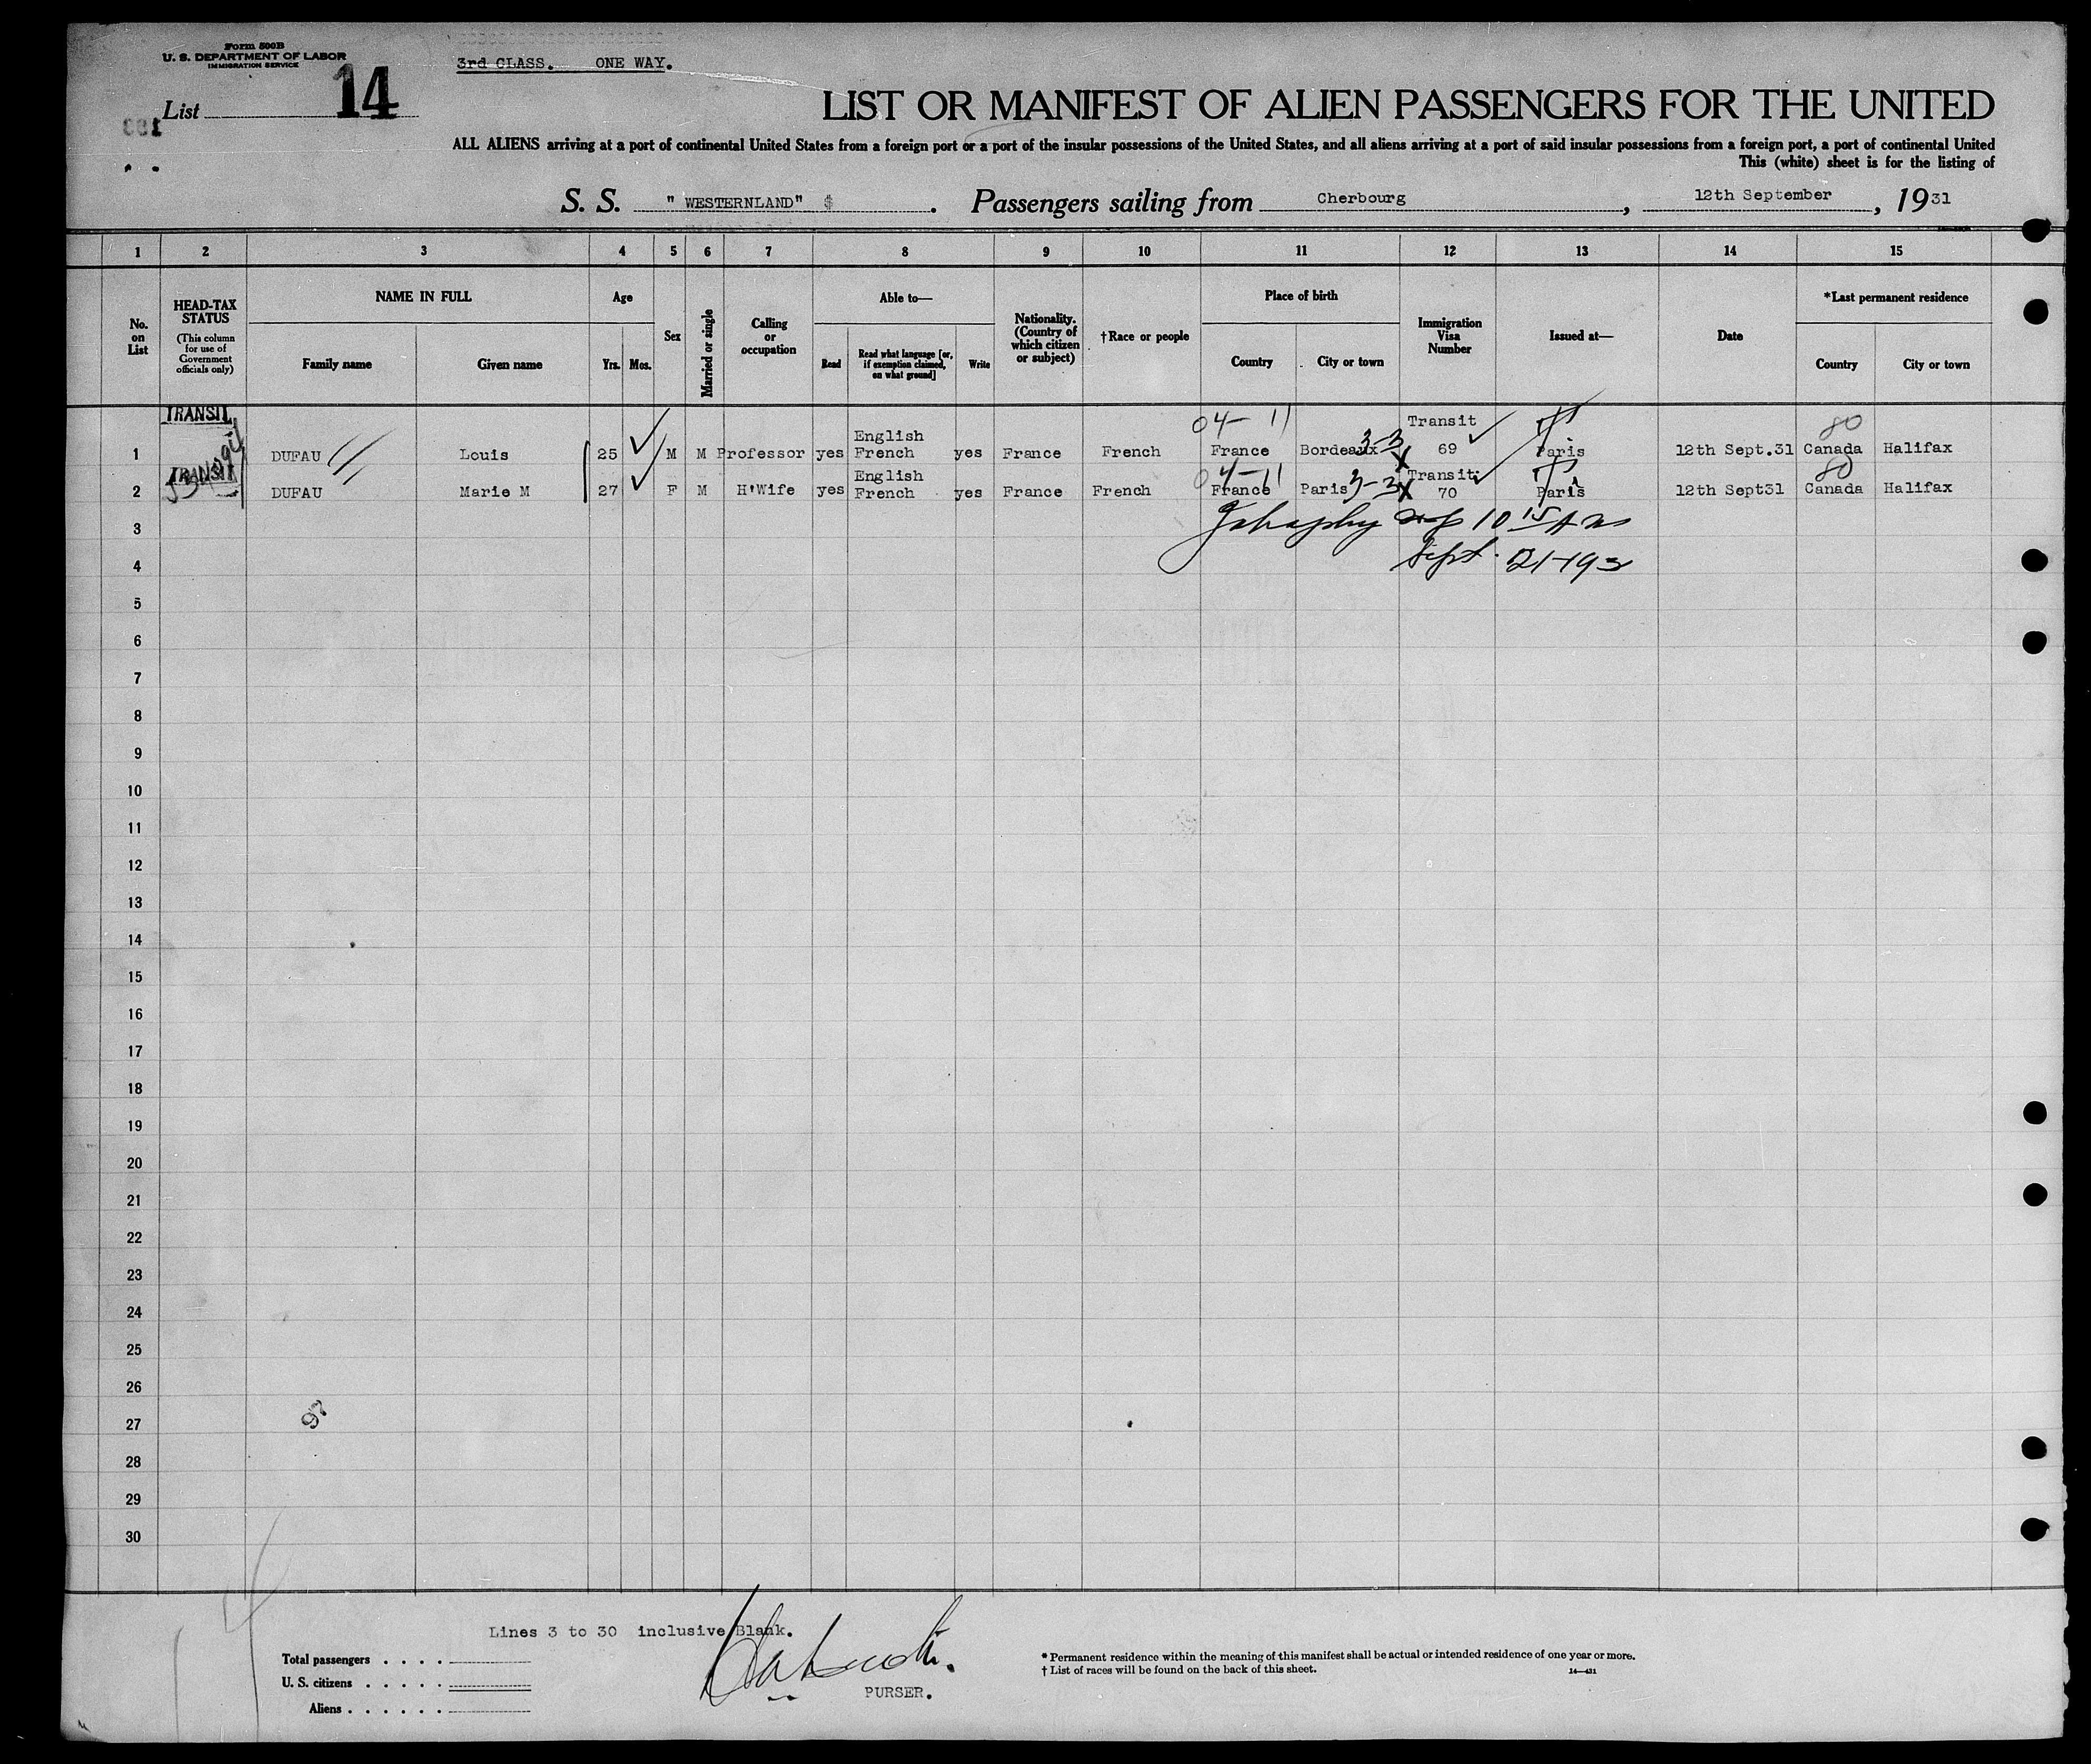 Form 500B
U. S. DEPARTMENT OF LABOR
IMMIGRATION SERVICE
3rd CLASS. ONE WAY.
List 14
LIST OR MANIFEST OF ALIEN PASSENGERS FOR THE UNITED
ALL ALIENS arriving at a port of continental United States from a foreign port or a port of the insular possessions of the United States, and all aliens arriving at a port of said insular possessions from a foreign port, a port of continental United
This (white) sheet is for the listing of
S. S. " WESTERNLAND" . Passengers sailing from Cherbourg , 12th September , 1931
1 2 3 4 5 6 7 8 9 10 11 12 13 14 15
No. on List
HEAD-TAX STATUS
(This column for use of Government officials only)
NAME IN FULL
Family name Given name
Age
Yrs. Mos.
Sex
Married or single
Calling or occupation
Able to—
Read
Read what language [or, if exemption claimed, on what ground]
Write
Nationality. (Country of which citizen or subject)
†Race or people
Place of birth
Country City or town
Immigration Visa Number
Issued at—
Date
*Last permanent residence
Country City or town
TRANSIT 04- 11 Transit 80
English
1 DUFAU Louis 25 M M Professor yes French yes France French France Bordeaux 3-3 69 Paris 12th Sept.31 Canada Halifax
TRANSIT English 04-11 Transit 80
2 DUFAU Marie M 27 F M H'Wife yes French yes France French France Paris 3-3 70 Paris 12th Sept31 Canada Halifax
3 10 15 AM
4 Sept. 21-193
5
6
7
8
9
10
11
12
13
14
15
16
17
18
19
20
21
22
23
24
25
26
27 97
28
29
30
Lines 3 to 30 inclusive Blank.
Total passengers . . . .
U. S. citizens . . . . .
Aliens . . . . . .
PURSER.
* Permanent residence within the meaning of this manifest shall be actual or intended residence of one year or more.
† List of races will be found on the back of this sheet. 14—431